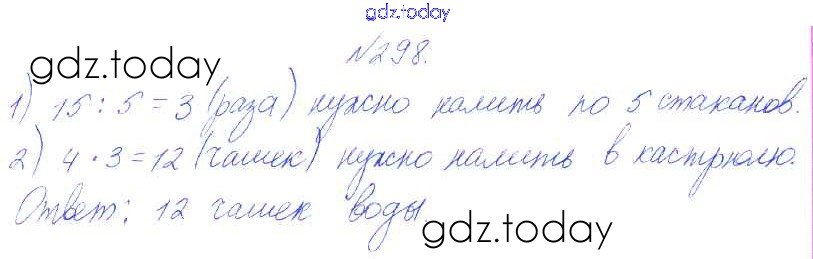 gdz.today
№298.
gdz.today
1) 15 : 5 = 3 (раза) нужно налить по 5 стаканов.
2) 4 · 3 = 12 (чашек) нужно налить в кастрюлю.
Ответ: 12 чашек воды
gdz.today